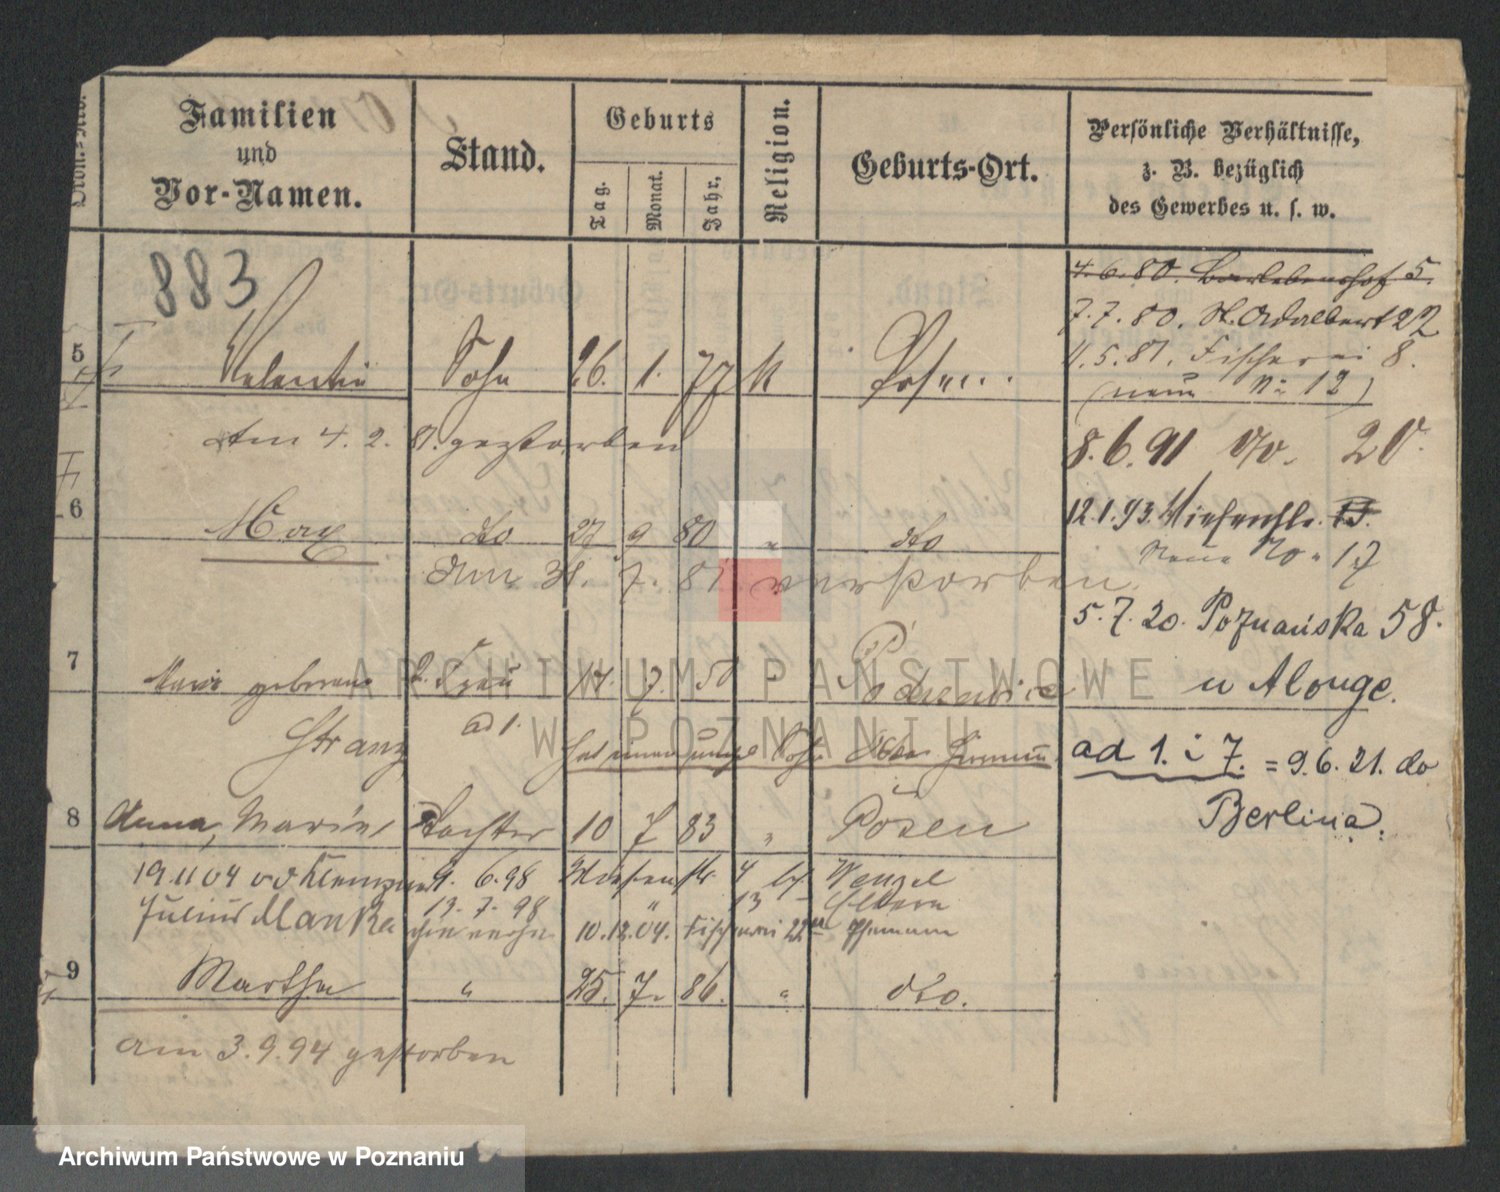 Familien und Vor-Namen.
Stand.
Geburts
Tag.
Monat.
Jahr.
Religion.
Geburts-Ort.
Persönliche Verhältnisse,
z. B. bezüglich
des Gewerbes u. s. w.
883
4.6.80. Berlebenshof 5.
7.7.80. St. Adalbert 22
4.5.81. Fischerei 8.
(neue No 12)
5 Valentin Sohn 26. 1. 77 k Posen.
Am 4. 2. 81. gestorben
8.6.91 No. 20.
6 Max dto 27 9 80 " dto
12.1.93. Wiesenstr. 13.
Neue No. 17
Am 31. 7. 81. verstorben
5.7.20. Poznańska 58.
7 Marie geborene 2. Frau 17. 7. 50 "
u Alouge.
Stranz ad 1.
ad 1. i 7. = 9.6.21. do
Berlina.
8 Anna, Marie, Tochter 10 7 83 " Posen
19.11.04 9. 6.98 Wiesenstr 4 bei Wenzel
Julius Manka 13. 7. 98 " 13 Eltern
10.12.04. Fischerei 22 Ehemann
9 Martha " 25. 7. 86. " dto.
am 3.9.94 gestorben
ARCHIWUM PAŃSTWOWE
W POZNANIU
Archiwum Państwowe w Poznaniu